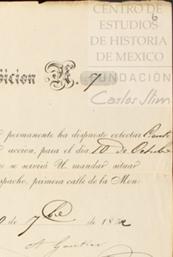 6
CENTRO DE
ESTUDIOS
DE HISTORIA
DE MEXICO
FUNDACIÓN
Carlos Slim
dicion N. 7
permanente ha dispuesto colectar
accion, para el dia 10 de Octubre
se servirá U. mandar situar
spacho, primera calle de la Mon
de 7bre de 18